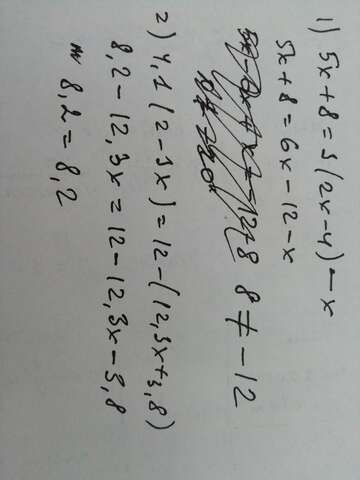 1) 5x+8=3(2x-4)-x
5x+8=6x-12-x
8≠-12
2) 4,1(2-3x)=12-(12,3x+3,8)
8,2-12,3x=12-12,3x-3,8
8,2=8,2